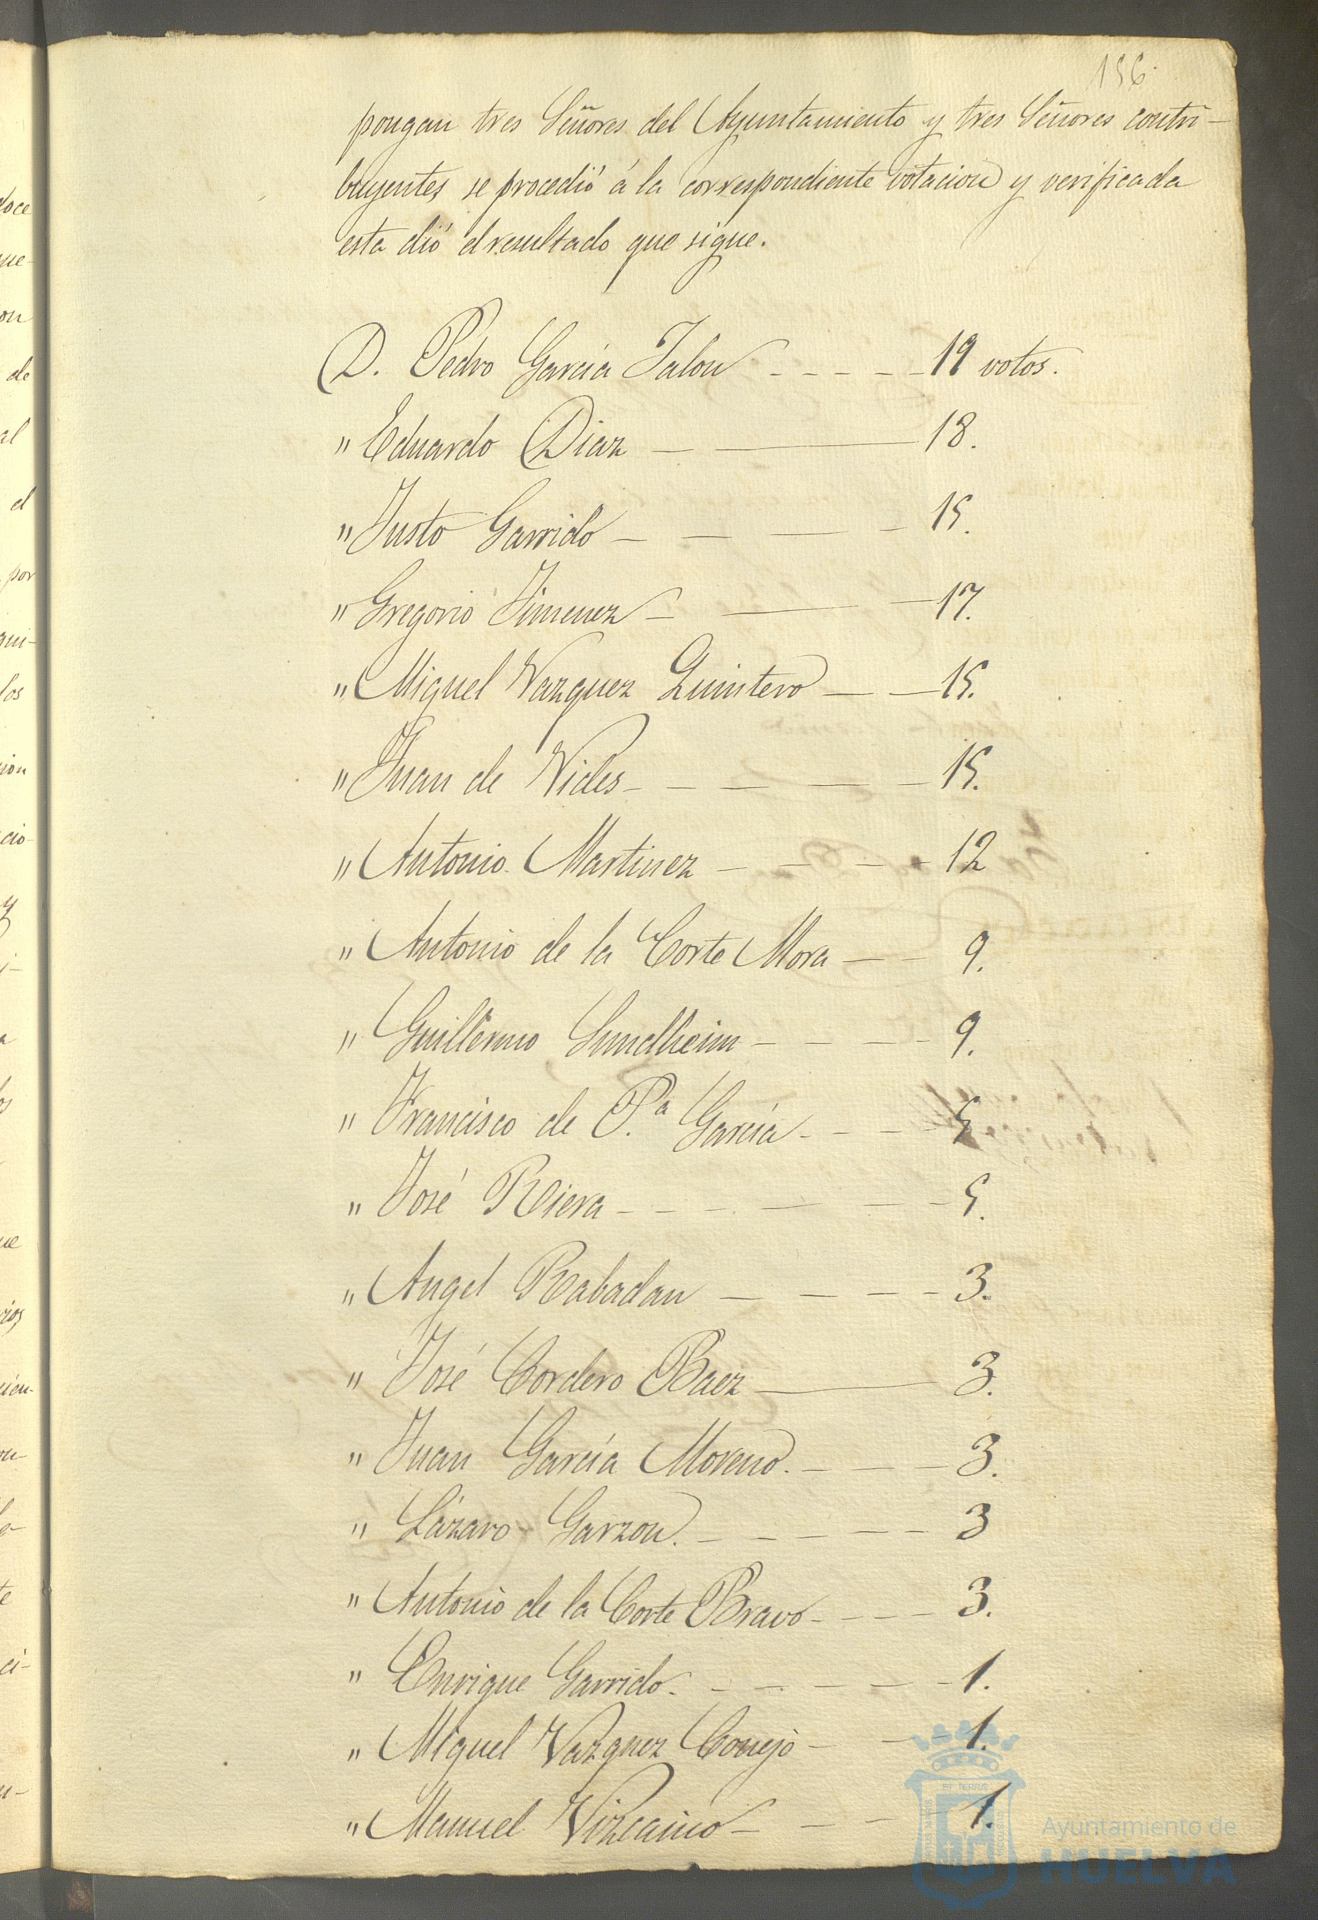 156.
pongan tres Señores del Ayuntamiento y tres Señores contri-
buyentes se procedió á la correspondiente votacion y verificada
esta dió el resultado que sigue.
D. Pedro García Jalon - - - - - 19 votos.
" Eduardo Diaz — — 18.
" Justo Garrido — — — — 15.
" Gregorio Jimenez — — — 17.
" Miguel Vazquez Quintero — — 15.
" Juan de Vides - - - — — 15.
" Antonio Martinez — - - - - 12
" Antonio de la Corte Mora — — 9.
" Guillermo Sundheim - - - - 9.
" Francisco de P.ª García - - - - 5
" José Riera - - - - — — - 5.
" Angel Rabadan — — - - - 3.
" José Cordero Baez — 3.
" Juan García Moreno. — — — 3.
" Lázaro Garzon. — - - - - 3
" Antonio de la Corte Bravo - - - - 3.
" Enrique Garrido. - - - - - 1.
" Miguel Vazquez Conejo - - - 1.
" Manuel Vizcaino — — - - 1.
Ayuntamiento de
HUELVA